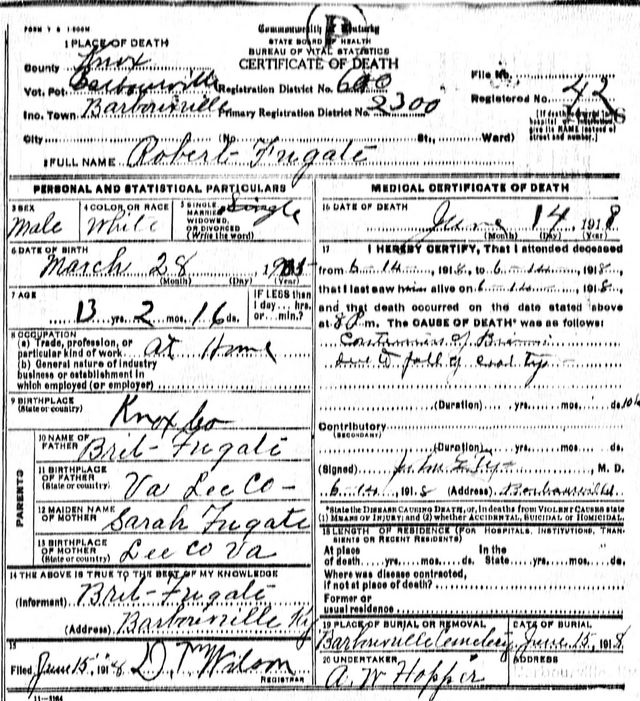 FORM V S 1 500M
Commonwealth of Kentucky
STATE BOARD OF HEALTH
BUREAU OF VITAL STATISTICS
CERTIFICATE OF DEATH
P
1 PLACE OF DEATH
County Knox
Vot. Pct. Barbourville Registration District No. 600
File No.
Inc. Town Barbourville Primary Registration District No. 2300
Registered No. 42
City (No. St., Ward)
[If death occurred in a hospital or institution, give its NAME instead of street and number.]
2 FULL NAME Robert Fugate
PERSONAL AND STATISTICAL PARTICULARS
3 SEX Male
4 COLOR OR RACE White
5 SINGLE MARRIED WIDOWED, OR DIVORCED (Write the word) Single
6 DATE OF BIRTH
March 28 , 1905
(Month) (Day) (Year)
7 AGE
13 yrs. 2 mos. 16 ds.
IF LESS than 1 day... hrs. or min.?
8 OCCUPATION
(a) Trade, profession, or particular kind of work At Home
(b) General nature of industry business or establishment in which employed (or employer)
9 BIRTHPLACE (State or country) Knox Co
PARENTS
10 NAME OF FATHER Brit Fugate
11 BIRTHPLACE OF FATHER (State or country) Va Lee Co
12 MAIDEN NAME OF MOTHER Sarah Fugate
13 BIRTHPLACE OF MOTHER (State or country) Lee Co Va
14 THE ABOVE IS TRUE TO THE BEST OF MY KNOWLEDGE
(Informant) Brit Fugate
(Address) Barbourville Ky
15
Filed June 15, 1918 D T Wilson
REGISTRAR
11-3184
MEDICAL CERTIFICATE OF DEATH
16 DATE OF DEATH
June 14 1918
(Month) (Day) (Year)
17 I HEREBY CERTIFY, That I attended deceased
from 6-14, 1918, to 6-14, 1918,
that I last saw him alive on 6-14, 1918,
and that death occurred on the date stated above
at 8 P.m. The CAUSE OF DEATH* was as follows:
due to fall of
(Duration) yrs. mos. ds.
Contributory
(SECONDARY)
(Duration) yrs. mos. ds.
(Signed) M. D.
6-14, 1918 (Address) Barbourville
*State the DISEASE CAUSING DEATH, or, in deaths from VIOLENT CAUSES state (1) MEANS OF INJURY; and (2) whether ACCIDENTAL, SUICIDAL or HOMICIDAL.
18 LENGTH OF RESIDENCE (FOR HOSPITALS, INSTITUTIONS, TRANSIENTS OR RECENT RESIDENTS)
At place In the
of death yrs. mos. ds. State yrs. mos. ds.
Where was disease contracted,
if not at place of death?
Former or
usual residence
19 PLACE OF BURIAL OR REMOVAL DATE OF BURIAL
Barbourville Cemetery June 15, 1918
20 UNDERTAKER ADDRESS
A. W Hopper